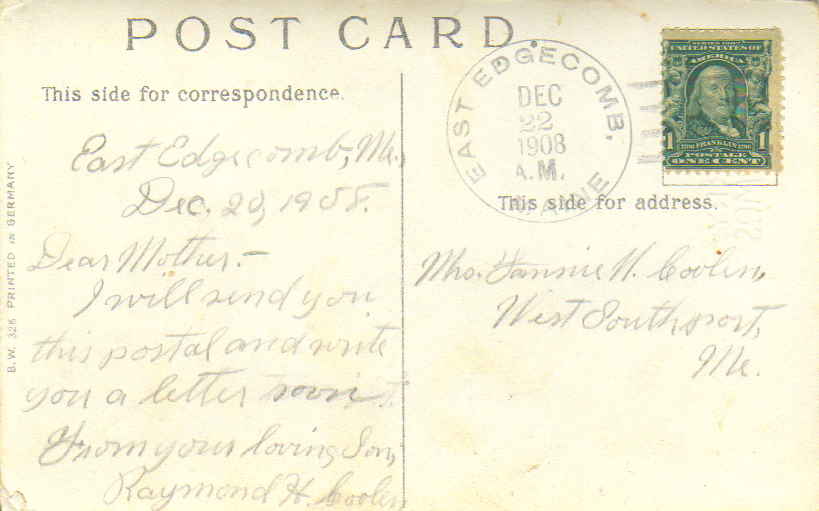 POST CARD
This side for correspondence.
East Edgecomb, Me.
Dec. 20, 1908.
Dear Mother:-
I will send you
this postal and write
you a letter soon.
From your loving Son,
Raymond H. Coolen
B.W. 326 PRINTED IN GERMANY
EAST EDGECOMB, MAINE
DEC
22
1908
A.M.
SERIES 1902
UNITED STATES OF
AMERICA
1706 FRANKLIN 1790
1 1
POSTAGE
ONE CENT
This side for address.
Mrs. Fannie H. Coolen,
West Southport,
Me.